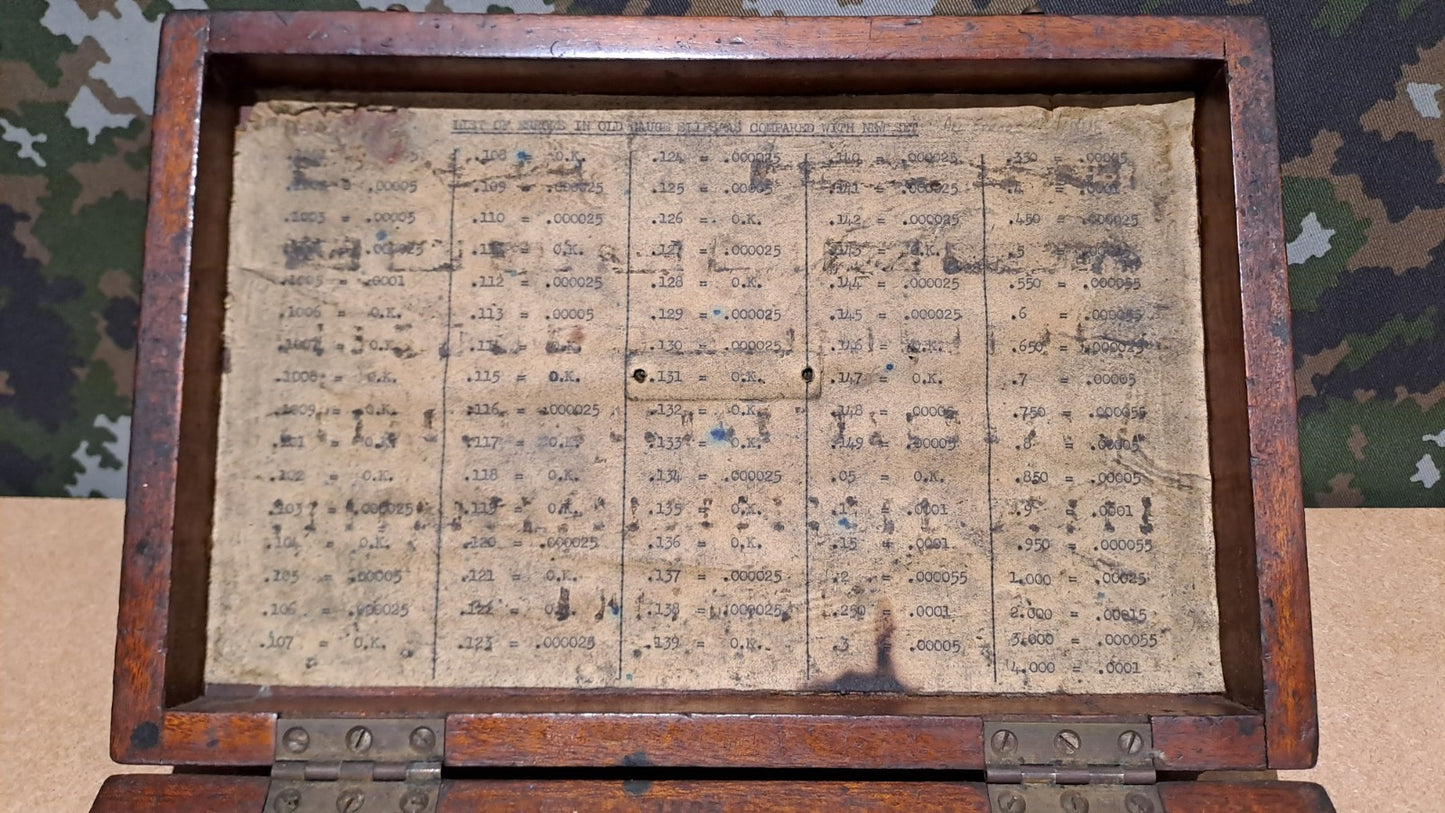 LIST OF ERRORS IN OLD GAUGE SLIPPERS COMPARED WITH NEW SET
.108 = O.K. .124 = .000025 .140 = .000025 .330 = .00005
= .00005 .109 = .000025 .125 = .00005 .141 = .000025 .0001
.1003 = .00005 .110 = .000025 .126 = O.K. .142 = .000025 .450 = .000025
O.K. .127 = .000025 .143 = O.K. .5
.1005 = .0001 .112 = .000025 .128 = O.K. .144 = .000025 .550 = .000055
.1006 = O.K. .113 = .00005 .129 = .000025 .145 = .000025 .6 = .000055
.1007 = O.K. .114 = O.K. .130 = .000025 .146 = O.K. .650 = .000025
.1008 = O.K. .115 = O.K. .131 = O.K. .147 = O.K. .7 = .00005
.1009 = O.K. .116 = .000025 .132 = O.K. .148 = .00005 .750 = .000055
.101 = O.K. .117 = O.K. .133 = O.K. .149 = .00005 .8 = .00005
.102 = O.K. .118 = O.K. .134 = .000025 .05 = O.K. .850 = .00005
.103 = .000025 .119 = O.K. .135 = O.K. .1 = .0001 .9 = .0001
.104 = O.K. .120 = .000025 .136 = O.K. .15 = .0001 .950 = .000055
.105 = .00005 .121 = O.K. .137 = .000025 .2 = .000055 1.000 = .00025
.106 = .000025 .122 = O.K. .138 = .000025 .250 = .0001 2.000 = .00015
.107 = O.K. .123 = .000025 .139 = O.K. .3 = .00005 3.000 = .000055
4.000 = .0001